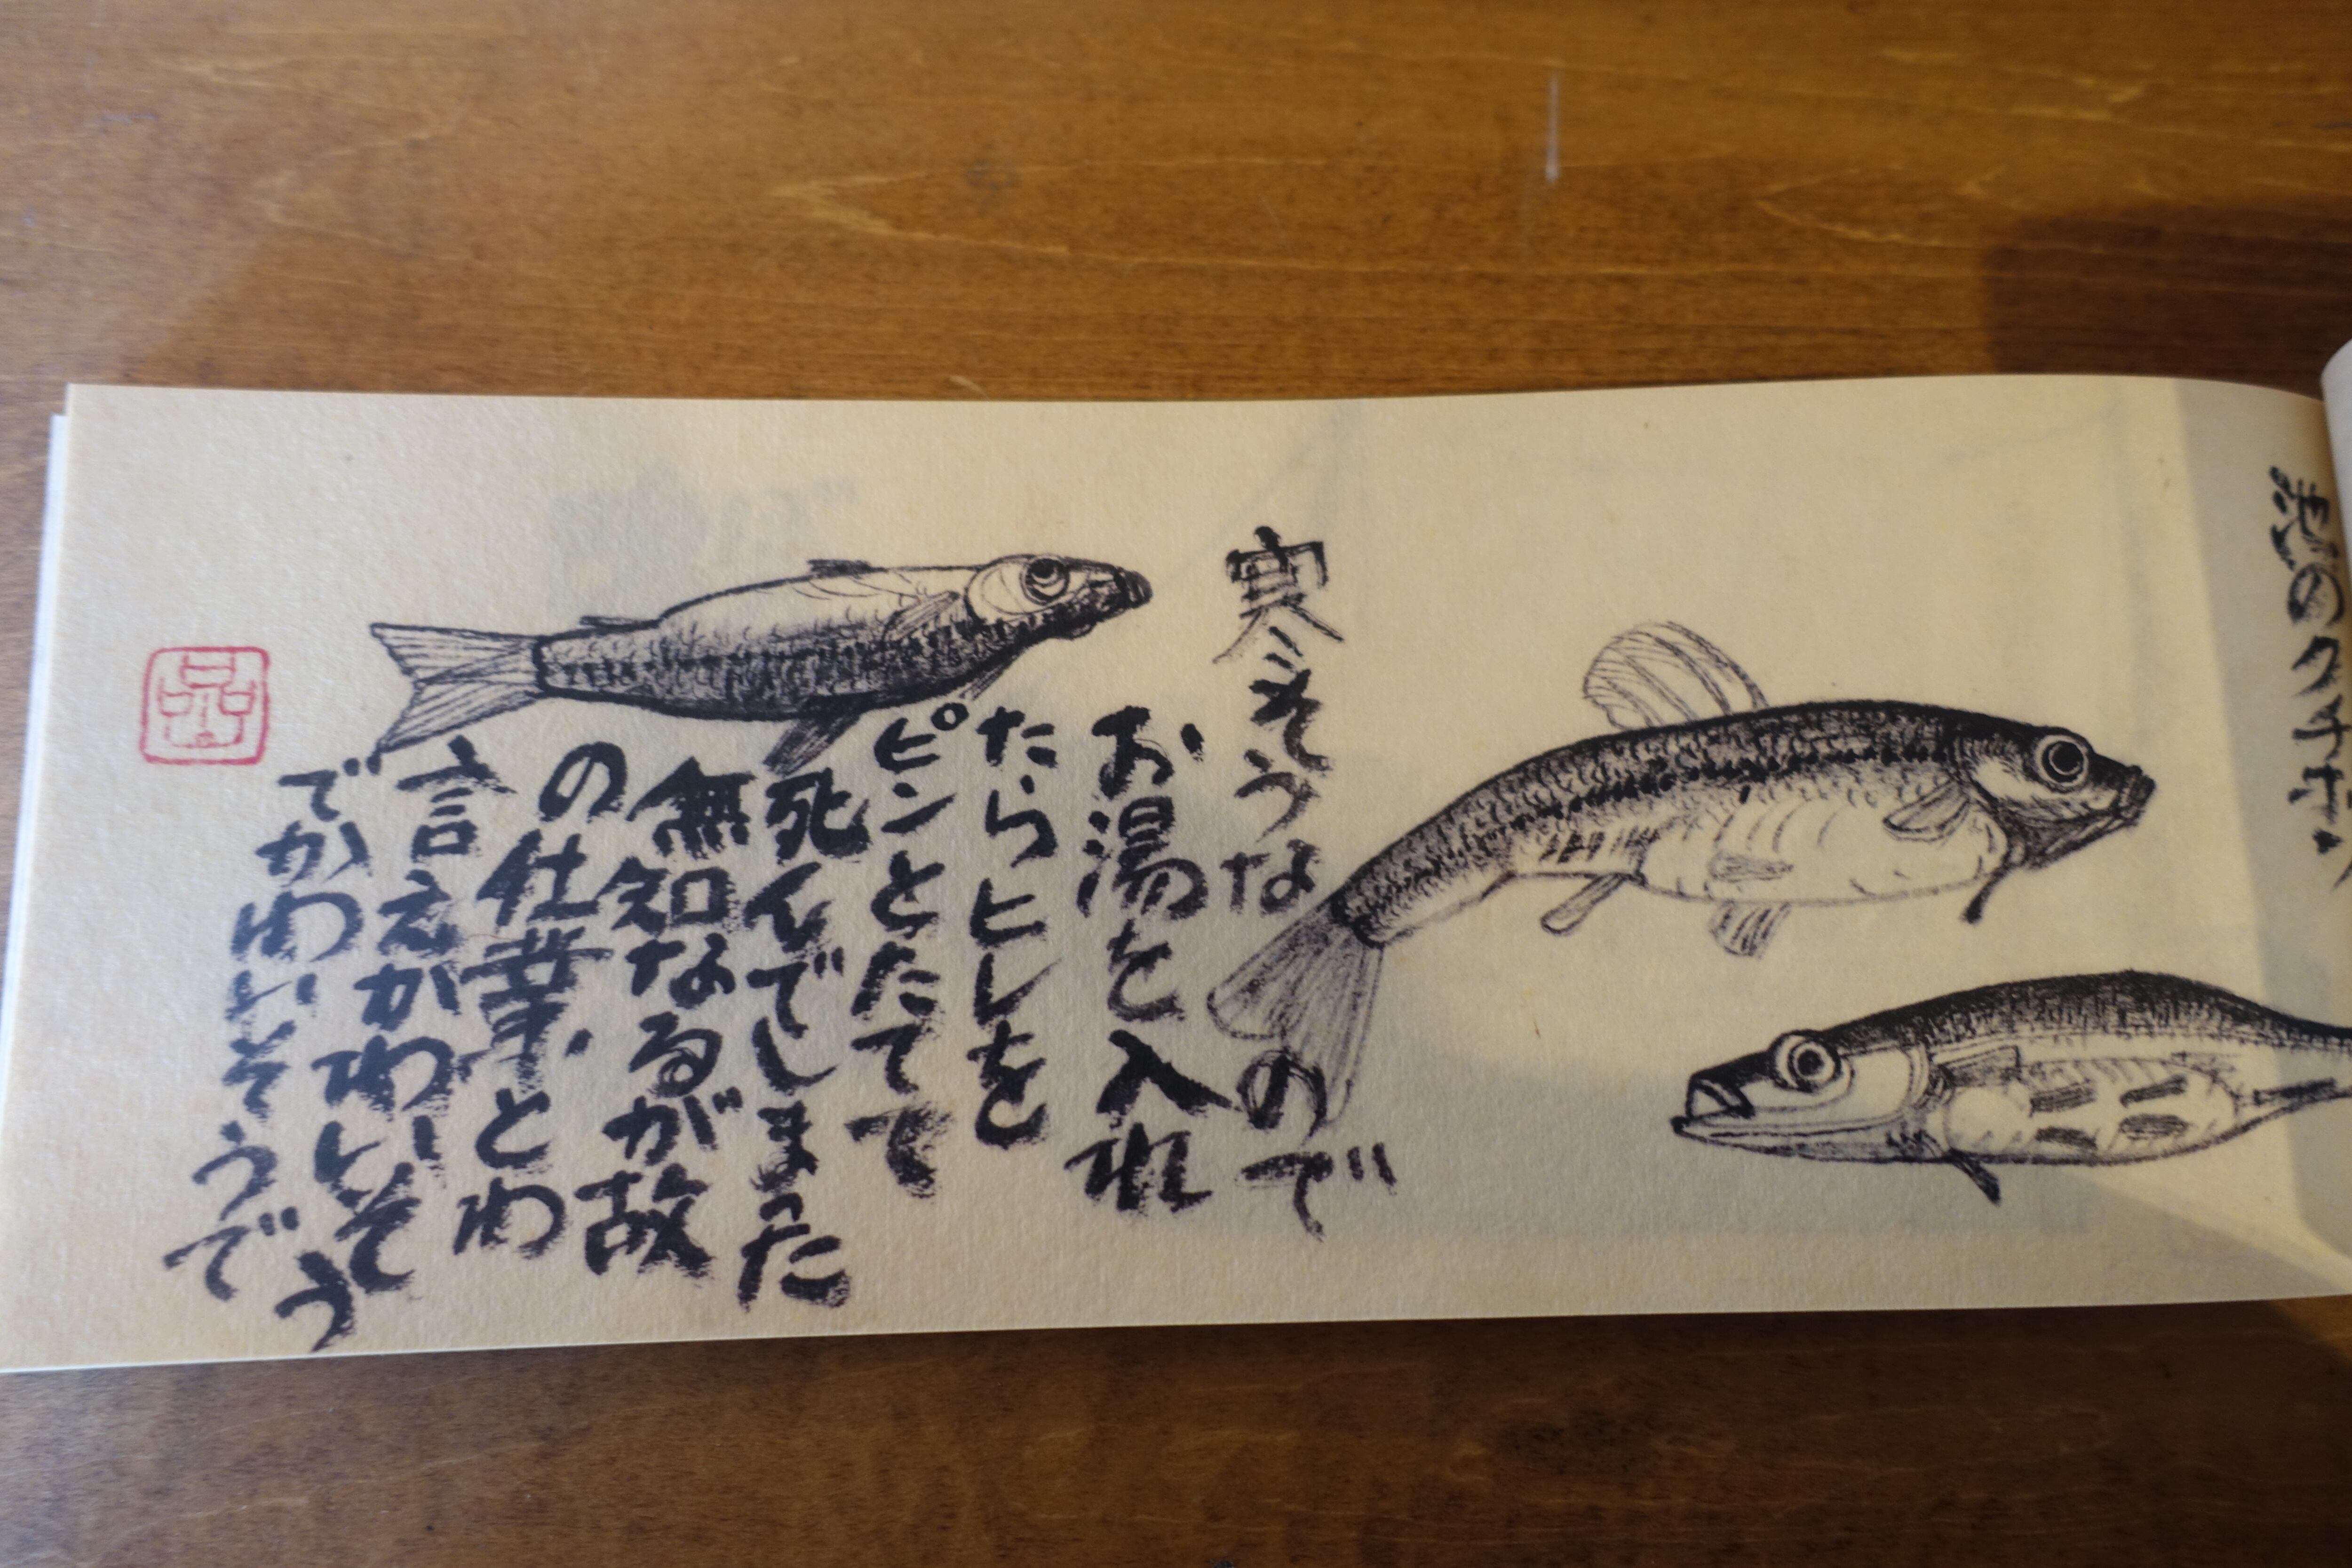 のクチ
寒そうなので
お湯を入れ
たらヒレを
ピンとたてて
死んでしまた
無知なるが故
の仕業とわ
言えかわいそう
でかわいそうで